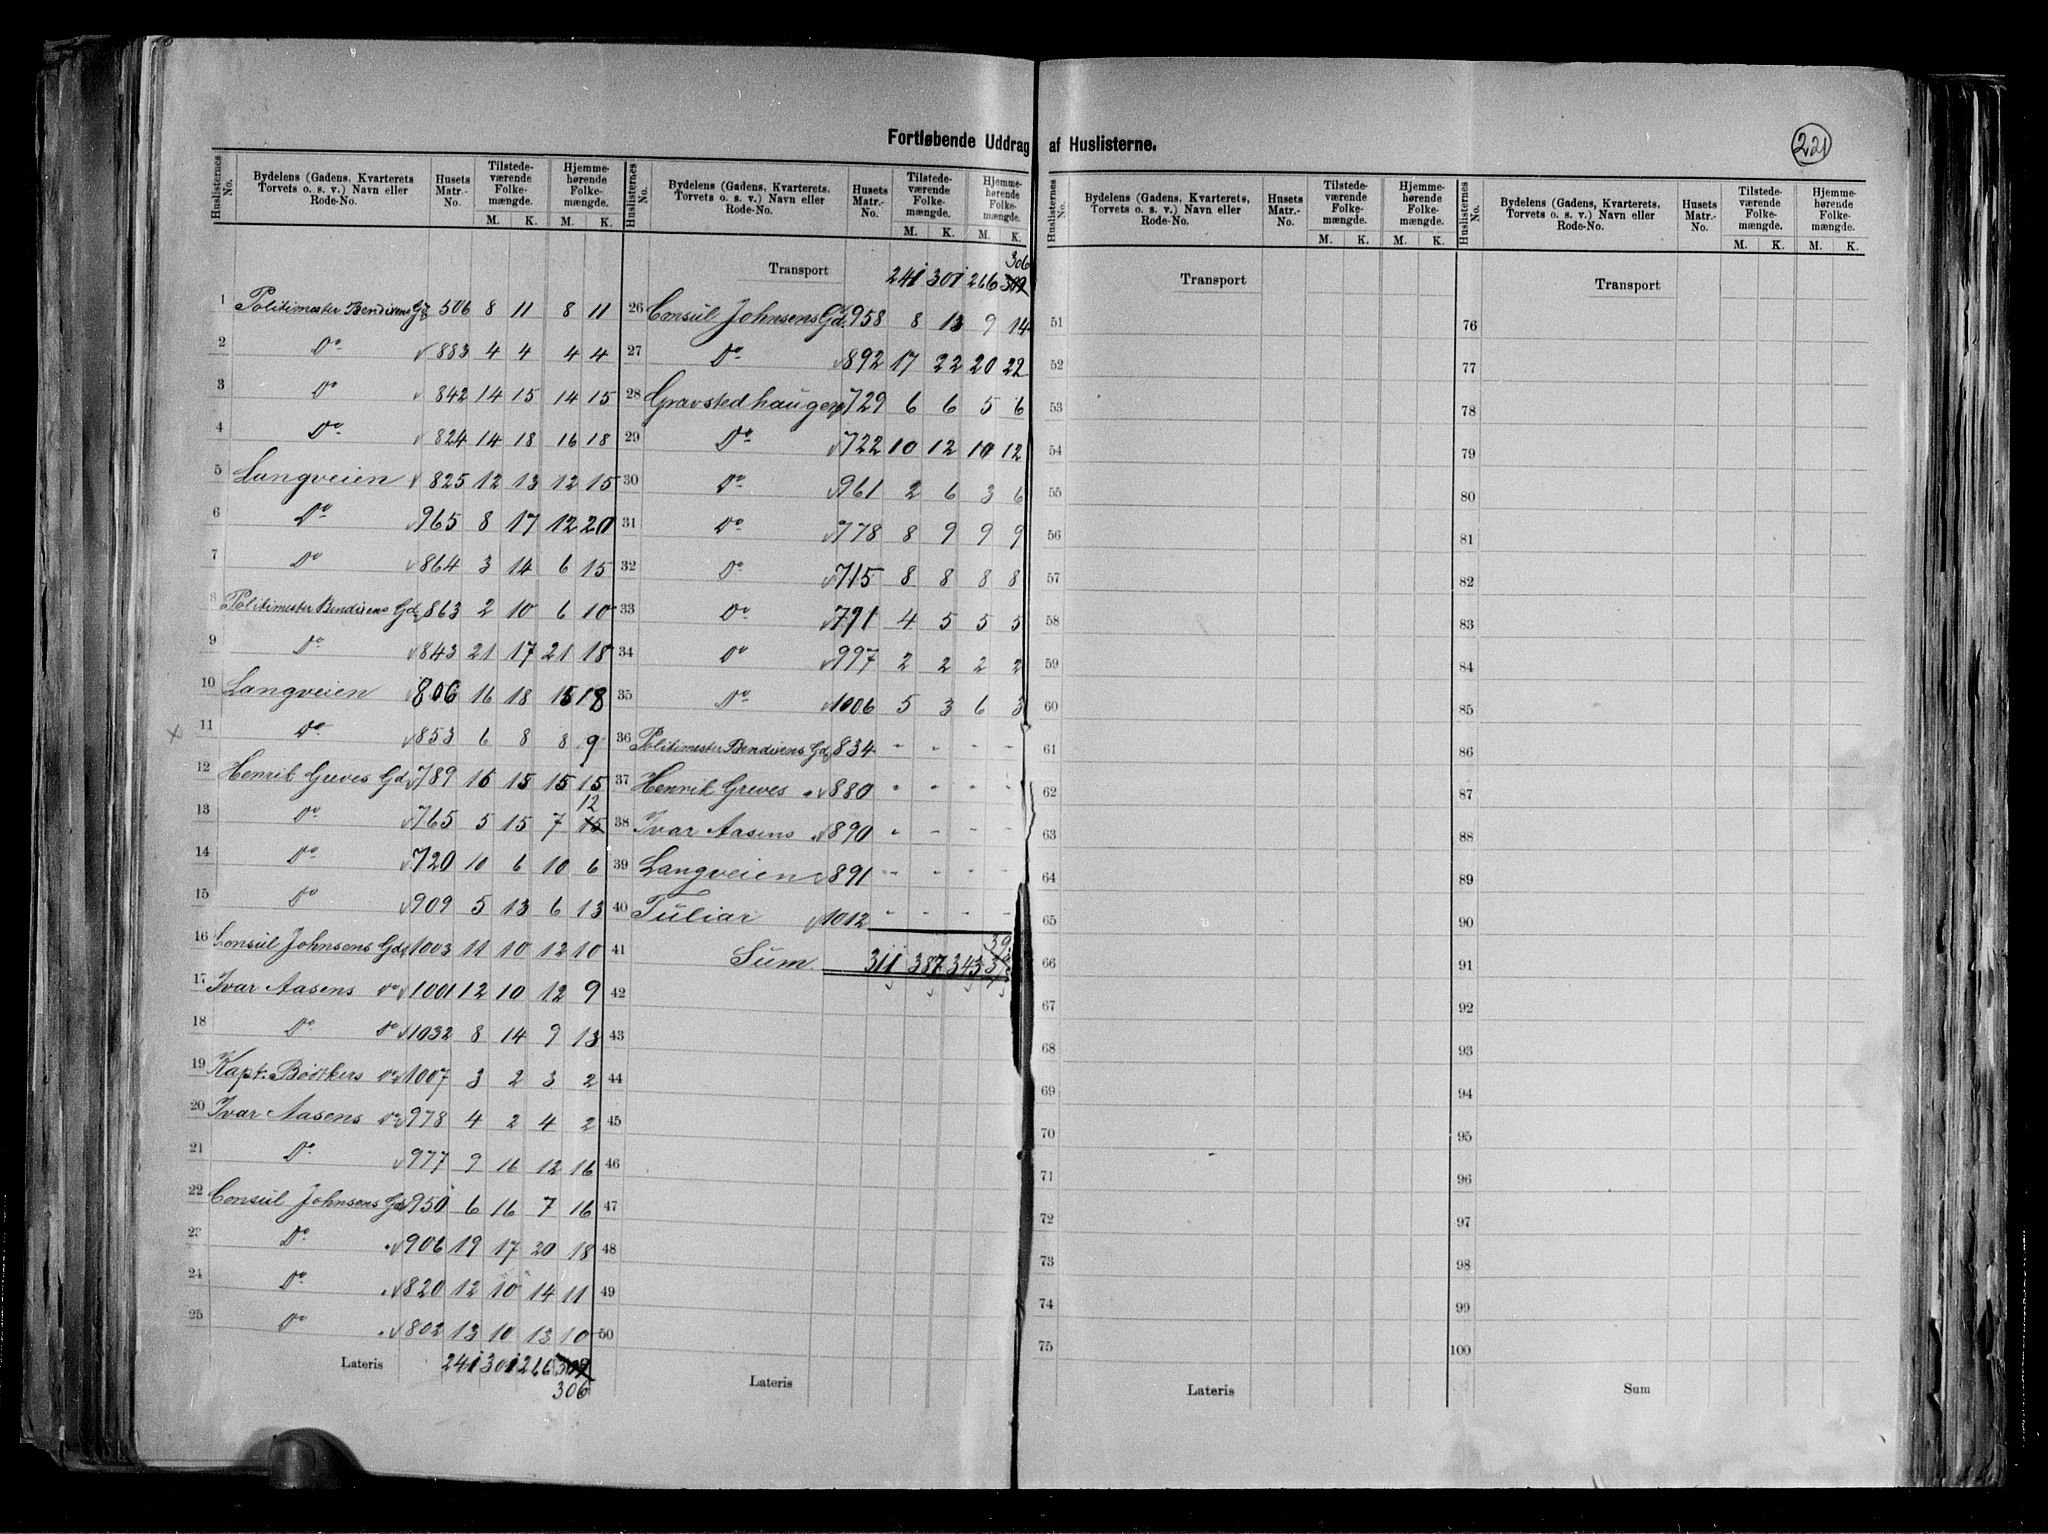 Fortløbende Uddrag af Huslisterne.
221
Huslisternes No. Bydelens (Gadens, Kvarterets, Torvets o. s. v.) Navn eller Rode-No. Husets Matr.-No. Tilstedeværende Folkemængde. M. K. Hjemmehørende Folkemængde. M. K.
1 Politimester Bendixens Gd 506 8 11 8 11
2 Do 883 4 4 4 4
3 Do 842 14 15 14 15
4 Do 824 14 18 16 18
5 Langveien 825 12 13 12 15
6 Do 965 8 17 12 20
7 Do 864 3 14 6 15
8 Politimester Bendixens Gd 863 2 10 6 10
9 Do 843 21 17 21 18
10 Langveien 806 16 18 15 18
11 Do 853 6 8 8 9
12 Henrik Greves Gd 789 16 15 15 15
13 Do 765 5 15 7 15 12
14 Do 720 10 6 10 6
15 Do 909 5 13 6 13
16 Consul Johnsens Gd 1003 11 10 12 10
17 Ivar Aasens Do 1001 12 10 12 9
18 Do Do 1032 8 14 9 13
19 Kapt. Bøtkers Do 1007 3 2 3 2
20 Ivar Aasens Do 978 4 2 4 2
21 Do 977 9 16 12 16
22 Consul Johnsens Gd 950 6 16 7 16
23 Do 906 19 17 20 18
24 Do 820 12 10 14 11
25 Do 802 13 10 13 10
Lateris 241 301 266 309
306
Huslisternes No. Bydelens (Gadens, Kvarterets, Torvets o. s. v.) Navn eller Rode-No. Husets Matr.-No. Tilstedeværende Folkemængde. M. K. Hjemmehørende Folkemængde. M. K.
306
Transport 241 301 266 309
26 Consul Johnsens Gd 958 8 13 9 14
27 Do 892 17 22 20 22
28 Gravstedhaugen 729 6 6 5 6
29 Do 722 10 12 10 12
30 Do 961 2 6 3 6
31 Do 778 8 9 9 9
32 Do 715 8 8 8 8
33 Do 791 4 5 5 5
34 Do 997 2 2 2 2
35 Do 1006 5 3 6 3
36 Politimester Bendixens Gd 834 - - - -
37 Henrik Greves " 880 - - - -
38 Ivar Aasens " 890 - - - -
39 Langveien 891 - - - -
40 Tuliar 1012 - - - -
41 Sum 311 387 343
42
43
44
45
46
47
48
49
50
Lateris
Huslisternes No. Bydelens (Gadens, Kvarterets, Torvets o. s. v.) Navn eller Rode-No. Husets Matr.-No. Tilstedeværende Folkemængde. M. K. Hjemmehørende Folkemængde. M. K.
Transport
51
52
53
54
55
56
57
58
59
60
61
62
63
64
65
66
67
68
69
70
71
72
73
74
75
Lateris
Huslisternes No. Bydelens (Gadens, Kvarterets, Torvets o. s. v.) Navn eller Rode-No. Husets Matr.-No. Tilstedeværende Folkemængde. M. K. Hjemmehørende Folkemængde. M. K.
Transport
76
77
78
79
80
81
82
83
84
85
86
87
88
89
90
91
92
93
94
95
96
97
98
99
100
Sum